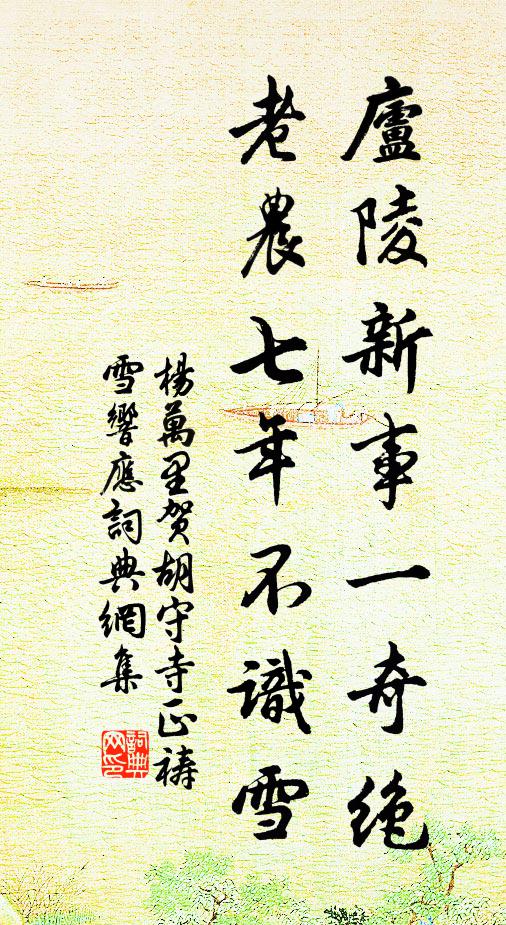 廬陵新事一奇绝
老農七年不識雪
楊萬里贺胡守寺正禱
雪響應詞典網集
詞典
网印